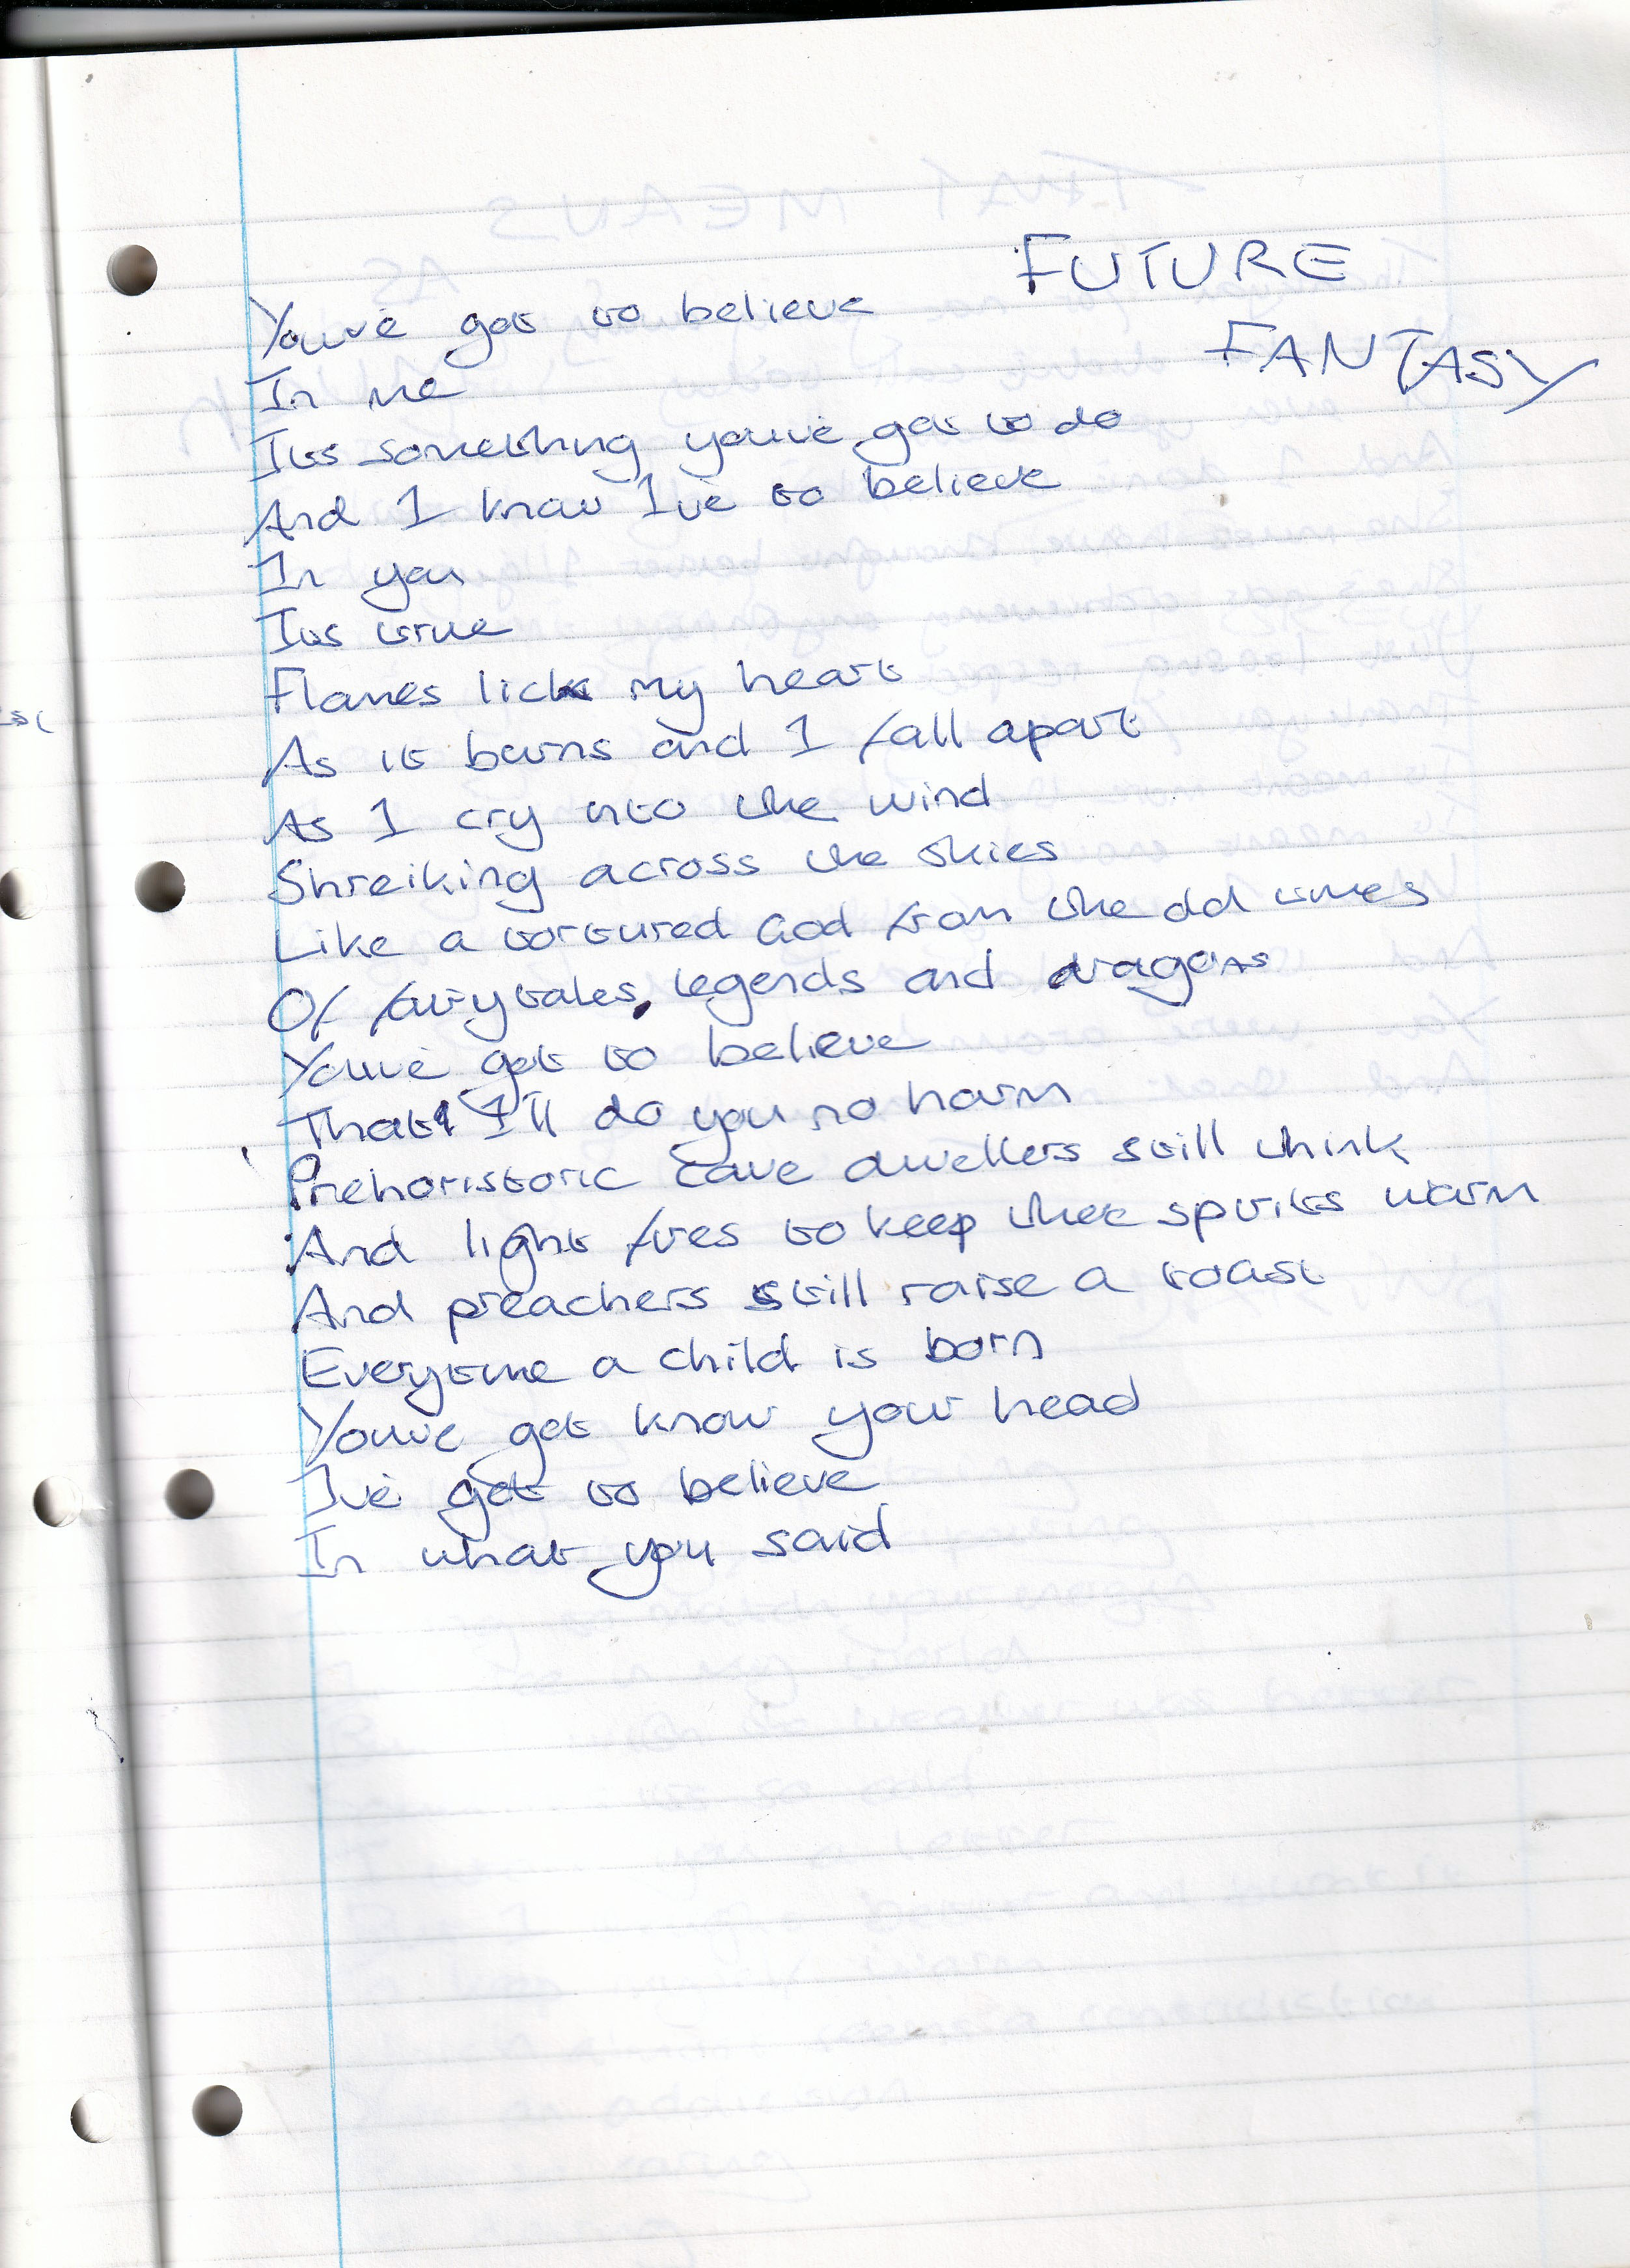 FUTURE
FANTASY
You've got to believe
In me
Its something you've got to do
And I know I've to believe
In you
Its true
Flames lick my heart
As it burns and I fall apart
As I cry into the wind
Shreiking across the skies
Like a tortured God from the old times
Of fairytales, legends and dragons
You've got to believe
That I'll do you no harm
Prehoristoric cave dwellers still think
And light fires to keep thee spirits warm
And preachers still raise a toast
Everytime a child is born
You've got know your head
I've got to believe
In what you said